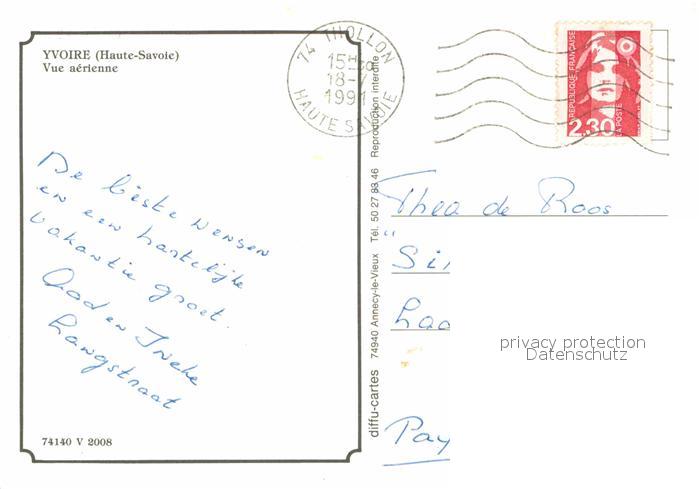 YVOIRE (Haute-Savoie)
Vue aérienne
74 THOLLON
15H
18-
1991
HAUTE SAVOIE
RÉPUBLIQUE FRANÇAISE
2,30
LA POSTE
De beste wensen
en een hartelijke
vakantie groet.
Aad en Ineke
Langstraat
74140 V 2008
diffu-cartes 74940 Annecy-le-Vieux Tél. 50 27 83 46 Reproduction interdite
Thea de Roos
" Sil
Lao
Pay
privacy protection
Datenschutz